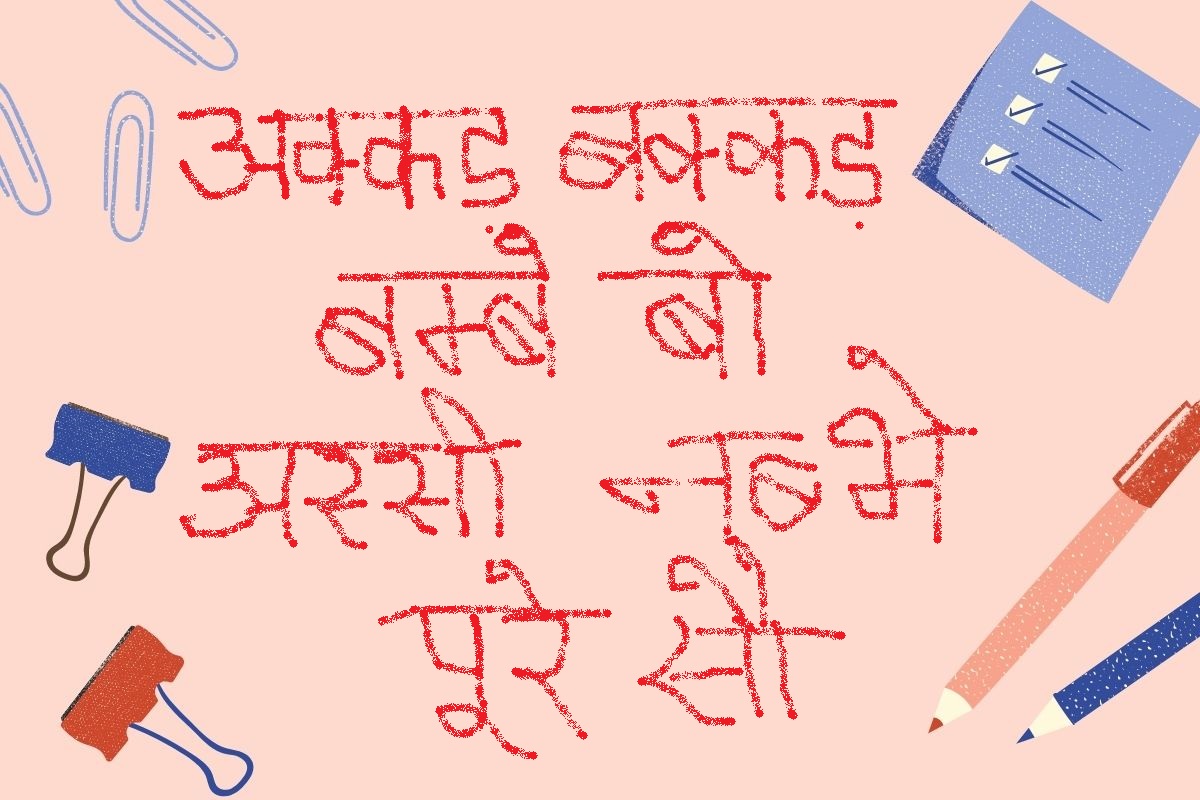 अक्कड़ बक्कड़
बम्बे बो
अस्सी नब्भे
पूरे सौ